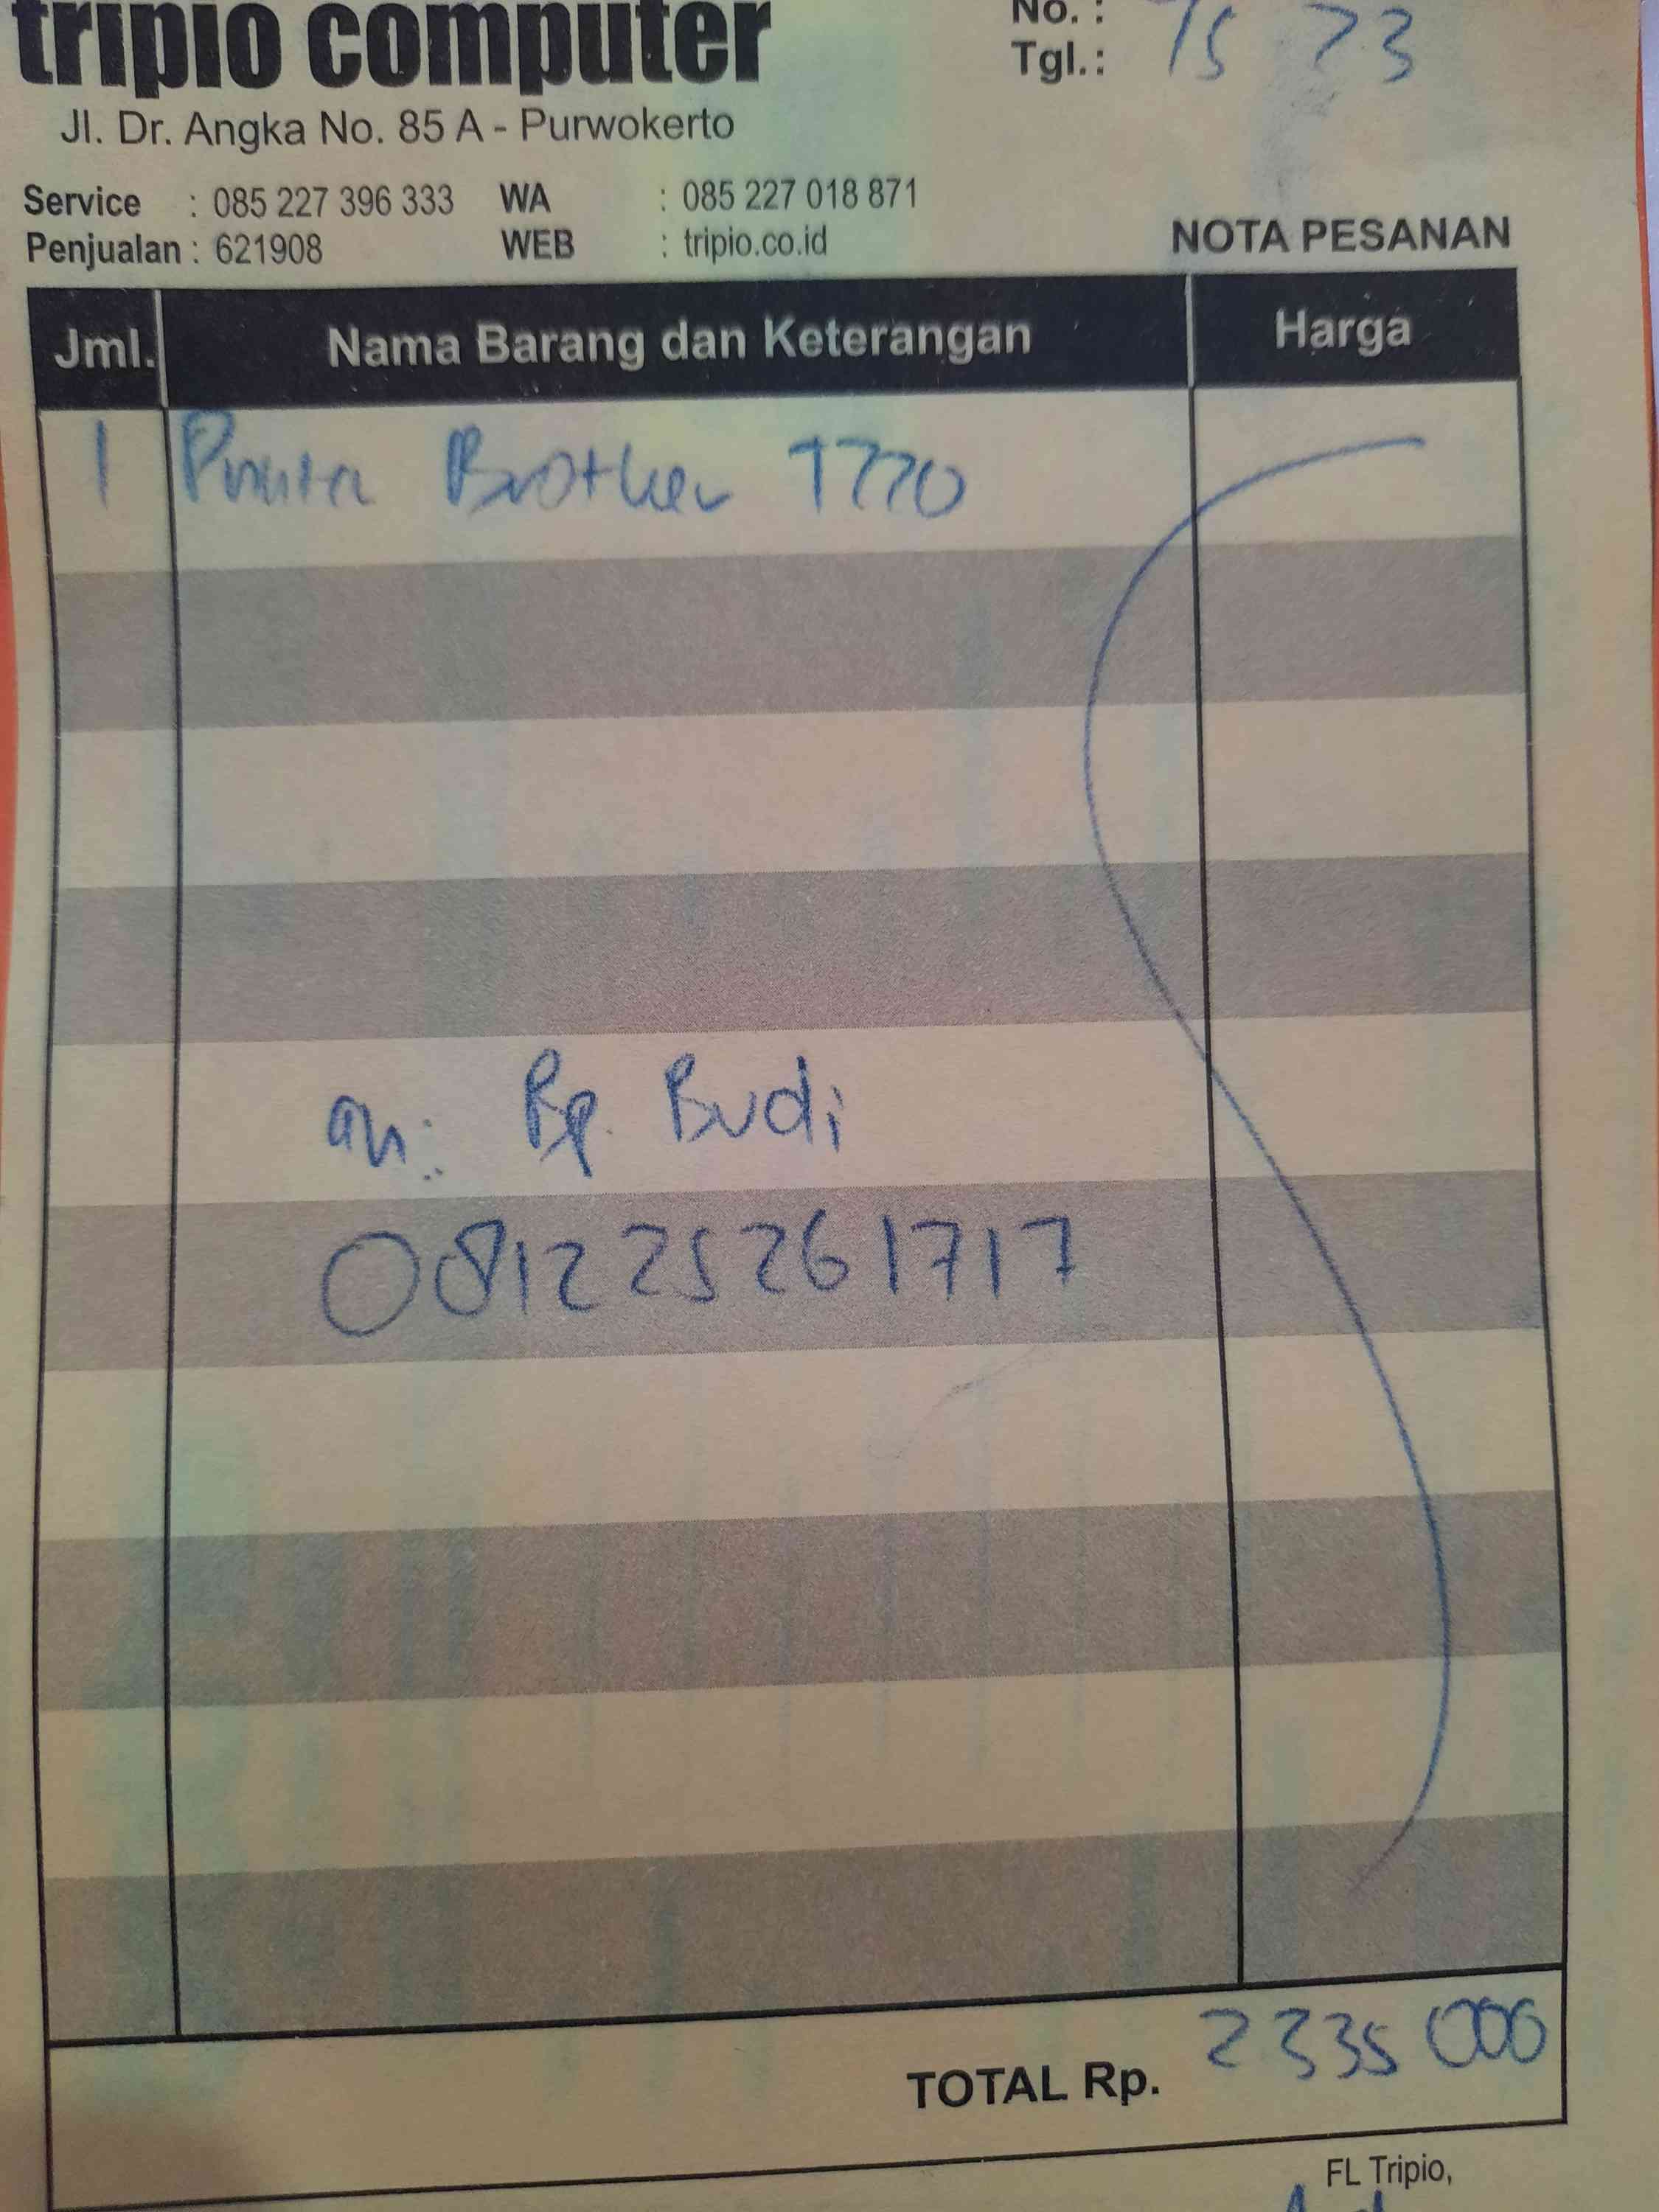 tripio computer
No. :
Tgl.: 15 7 23
Jl. Dr. Angka No. 85 A - Purwokerto
Service : 085 227 396 333 WA : 085 227 018 871
Penjualan : 621908 WEB : tripio.co.id
NOTA PESANAN
Jml. Nama Barang dan Keterangan Harga
1 Printer Brother T220
an: Bp. Budi
081225261717
TOTAL Rp. 2335 000
FL Tripio,